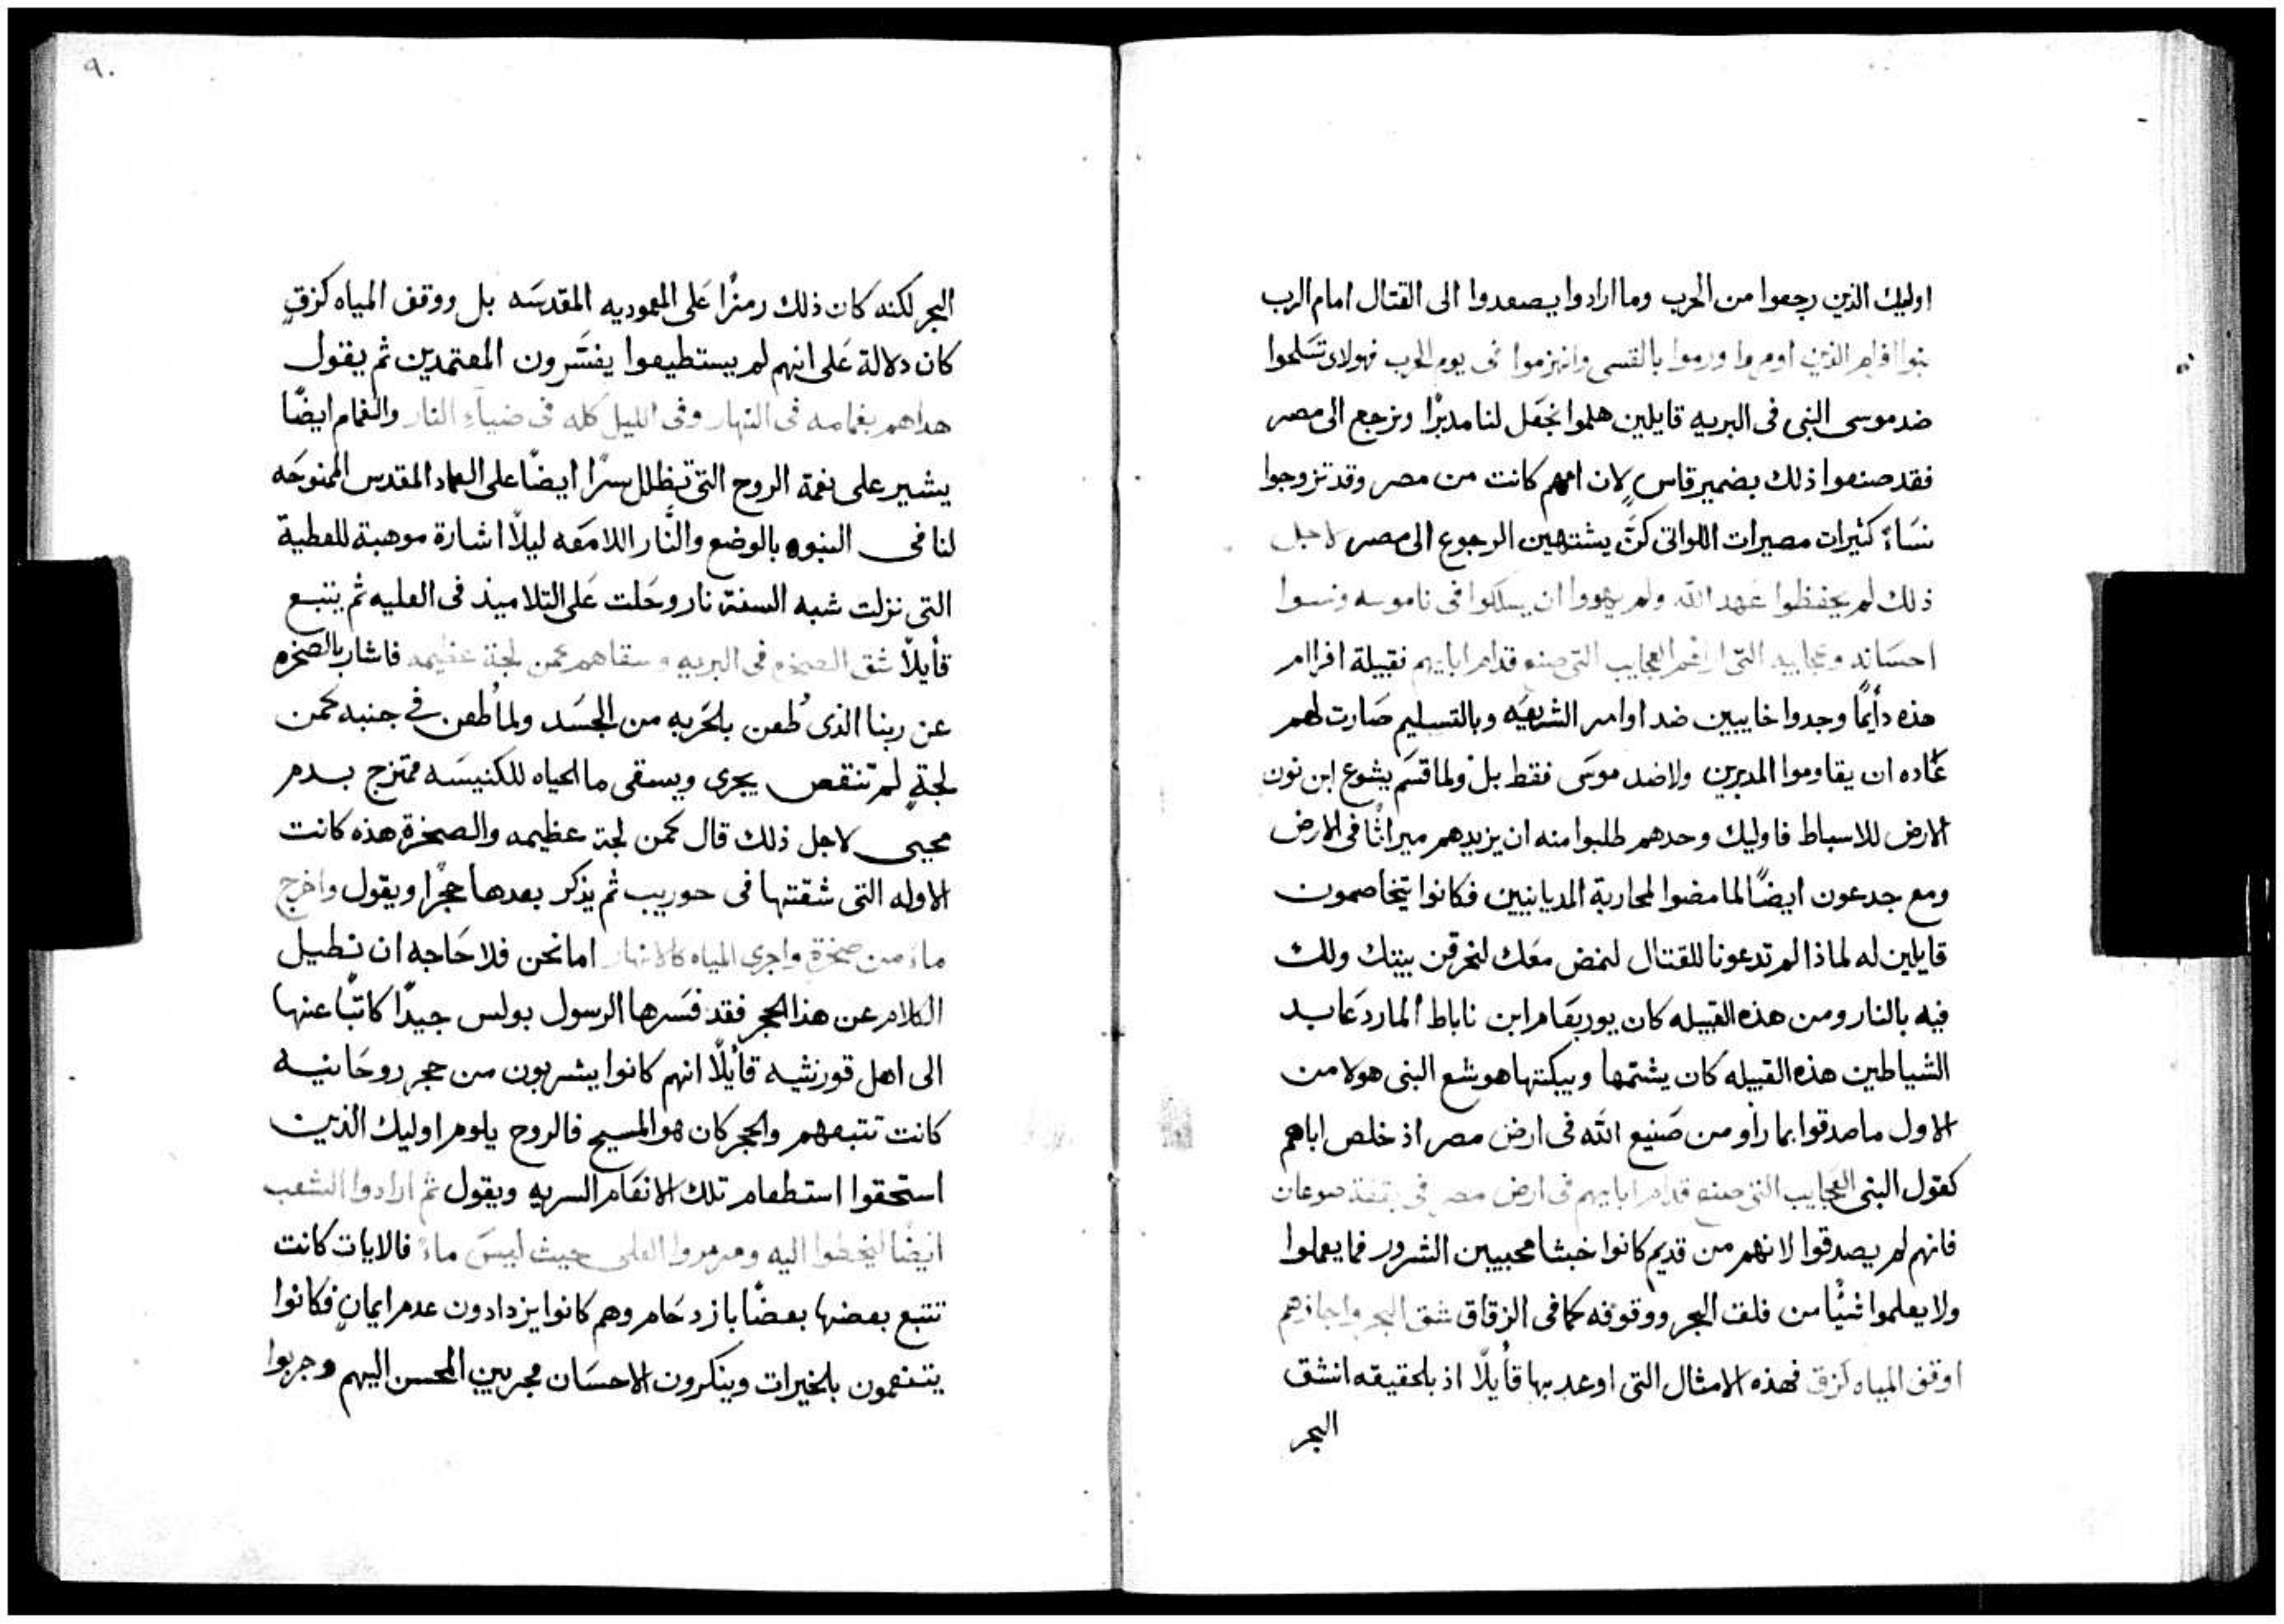 اوليك الذين رجعوا من الحرب وما ارادوا يصعدوا الى القتال امام الرب
بنوا افرام الذين اوتروا ورموا بالقسى وانهزموا فى يوم الحرب فهولاى تسَلحوا
ضد موسى النبى فى البريه قايلين هلموا نجعَل لنا مدبرًا ونرجع الى مصر
فقد صنعوا ذلك بضمير قاسٍ لان امهم كانت من مصر وقد تزوجوا
نسَاءً كثيرات مصيرات اللواتى كنَّ يشتهين الرجوع الى مصر لاجل
ذلك لم يحفظوا عَهد الله ولم يهووا ان يسلكوا فى ناموسه ونسوا
احسَانه وعجايبه التى اراهم العجايب التى صنع قدام ابايهم نقبيلة افراام
هذه دأيمًا وجدوا خايبين ضد اوامر الشريعَه وبالتسليم صَارت لهم
عَاده ان يقاوموا المدبرين ولا ضد موسَى فقط بل ولما قسَم يشوع ابن نون
الارض للاسباط فاوليك وحدهم طلبوا منه ان يزيدهم ميراثًا فى الارض
ومع جدعون ايضًا لما مضوا لمحاربة المديانيين فكانوا يتخاصمون
قايلين له لماذا لم تدعونا للقتال لنمض معَك لنحرقن بيتك وللث
فيه بالنار ومن هذه القبيله كان يوربعَام ابن ناباط المارد عَابد
الشياطين هذه القبيله كان يشتمها ويبكتها هوشع النبى هولا من
الاول ما صدقوا بما رأو من صَنيع الله فى ارض مصر اذ خلص اباهم
كقول النبى العجَايب التى صنع قدام ابايهم فى ارض مصر فى بقعة صوعان
فانهم لم يصدقوا لانهم من قديم كانوا خبثا محبيين الشرور فما يعملوا
ولا يعلموا شيًا من فلق البحر ووقوفه كما فى الزقاق شق البحر واجازهم
اوقف المياه كزق فهذه الامثال التى اوعد بها قأيلًا اذ بالحقيقه انشق
البحر
٩٠
البحر لكنه كان ذلك رمزًا عَلى المعموديه المقدسَه بل ووقف المياه كزقٍ
كان دلالة عَلى انهم لم يستطيعوا يفسَرون المعتمدين ثم يقول
هداهم بغمامه فى النهار وفى الليل كله فى ضياء النار والغمام ايضًا
يشير على نعمة الروح التى تظلل سرًا ايضًا على العماد المقدس الممنوحَه
لنا فى النبوه بالوضع والنَّار اللامعَه ليلًا اشارة موهبة للعطية
التى نزلت شبه السنة نار وحَلت عَلى التلاميذ فى العليه ثم يتبع
قأيلًا شق الصخره فى البريه وسقاهم كمن لجة عظيمه فاشار بالصخره
عن ربنا الذى طُعن بلحَربه من الجسَد ولما طُعن فى جنبه كمن
لجةٍ لم تنقص يجرى ويسقى ما الحياه للكنيسَه ممتزج بدم
محيى لاجل ذلك قال كمن لجة عظيمه والصخرة هذه كانت
الاوله التى شقتها فى حوريب ثم يذكر بعدها حجرًا ويقول واخرج
ماءً من صخرةٍ واجرى المياه كالانهار اما نحن فلا حَاجه ان نطيل
الكلام عن هذا الحجر فقد فسَرها الرسول بولس جيدًا كاتبًا عنها
الى اهل قورنثيه قأيلًا انهم كانوا يشربون من حجر روحَانيه
كانت تتبعهم والحجر كان هو المسيح فالروح يلوم اوليك الذين
استحقوا استطعام تلك الانعَام السريه ويقول ثم ارادوا الشعب
ايضًا ليخطوا اليه ومرمروا العلى حيث ليسَ ماءً فالايات كانت
تتبع بعضها بعضًا بازدحَام وهم كانوا يزدادون عدم ايمانٍ فكانوا
يتنعمون بلخيرات وينكرون الاحسَان مجربين المحسن اليهم وجربوا